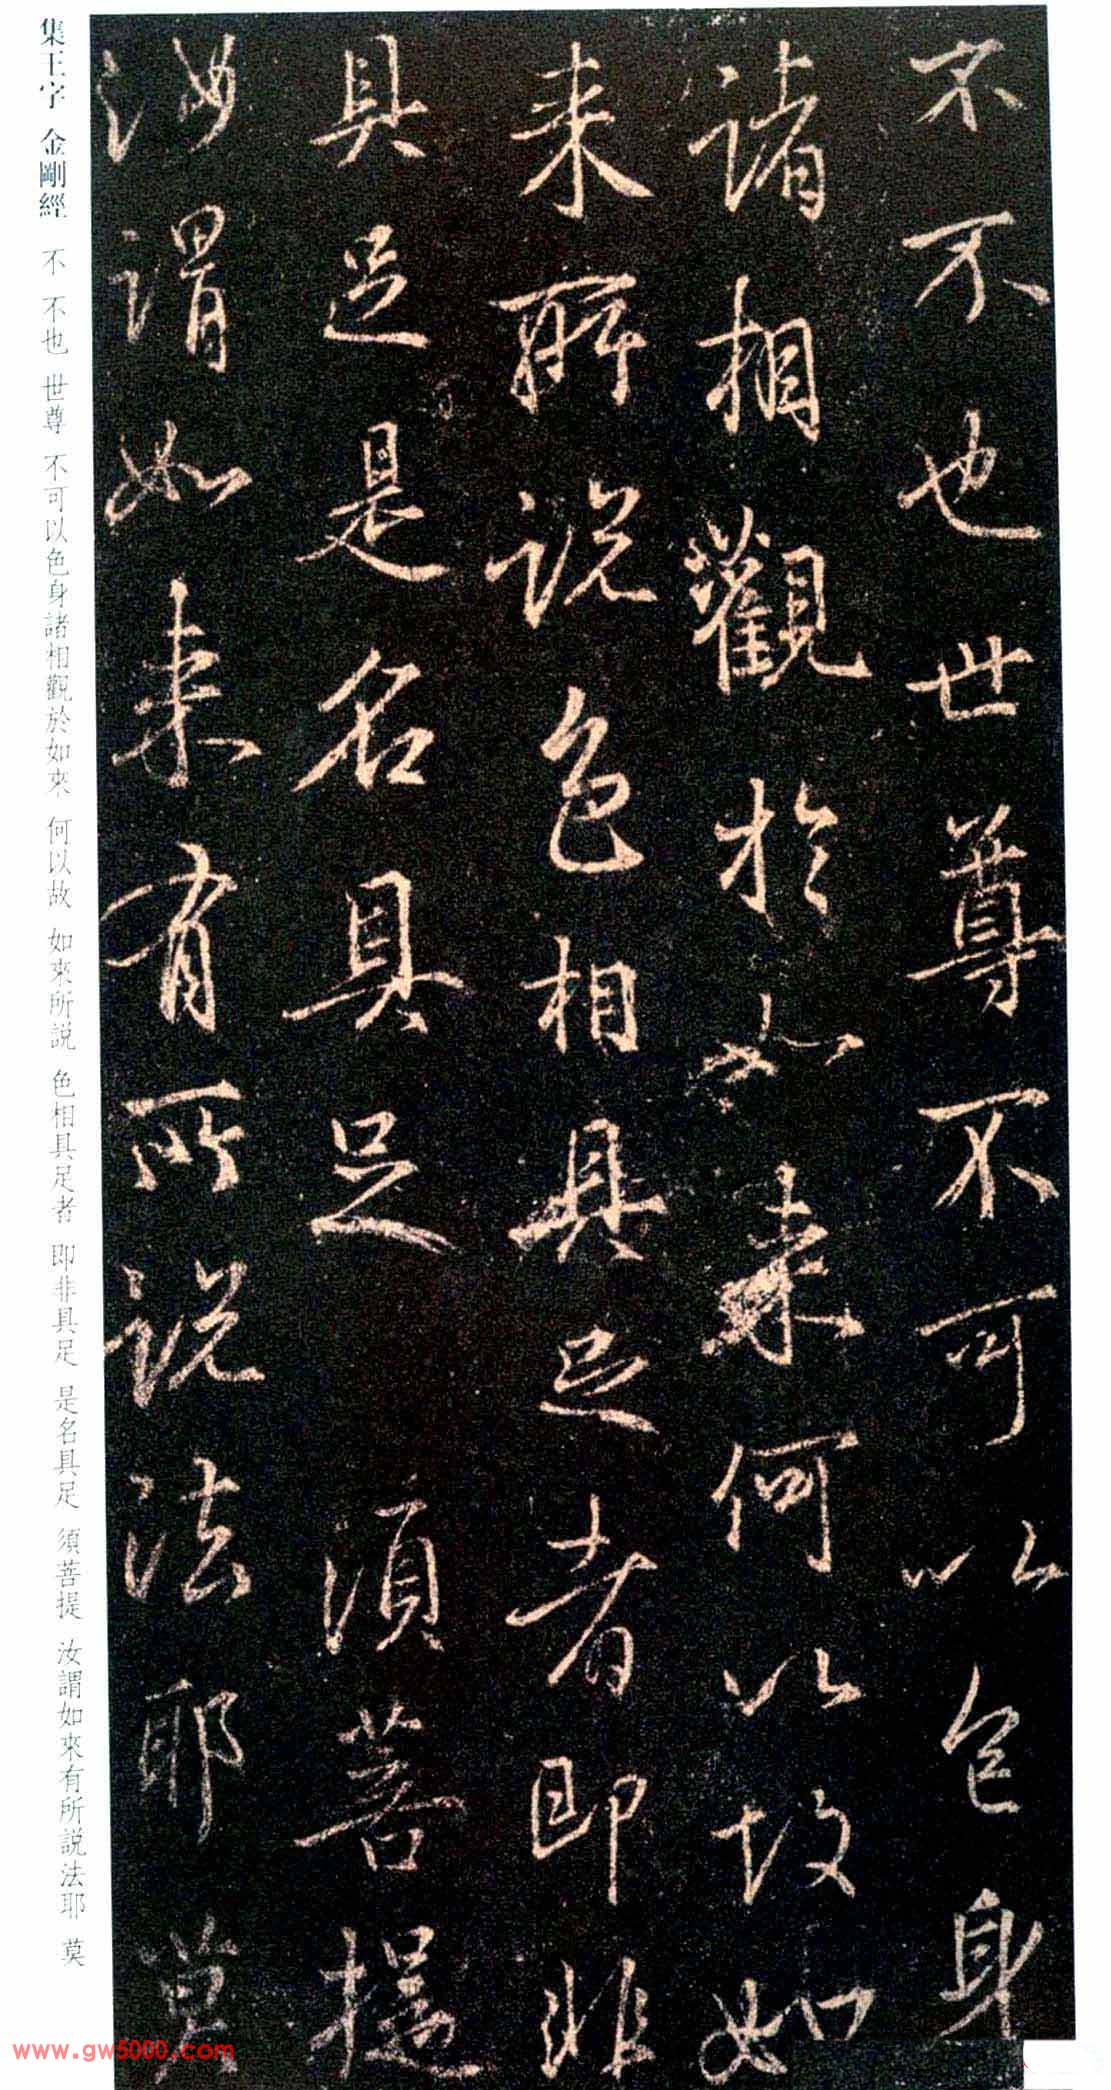 不不也世尊不可以色身
諸相觀於如来何以故如
来所説色相具足者即非
具足是名具足須菩提
汝謂如来有所説法耶莫
集王字 金剛經 不 不也 世尊 不可以色身諸相觀於如來 何以故 如來所説 色相具足者 即非具足 是名具足 須菩提 汝謂如來有所説法耶 莫
www.gw5000.com